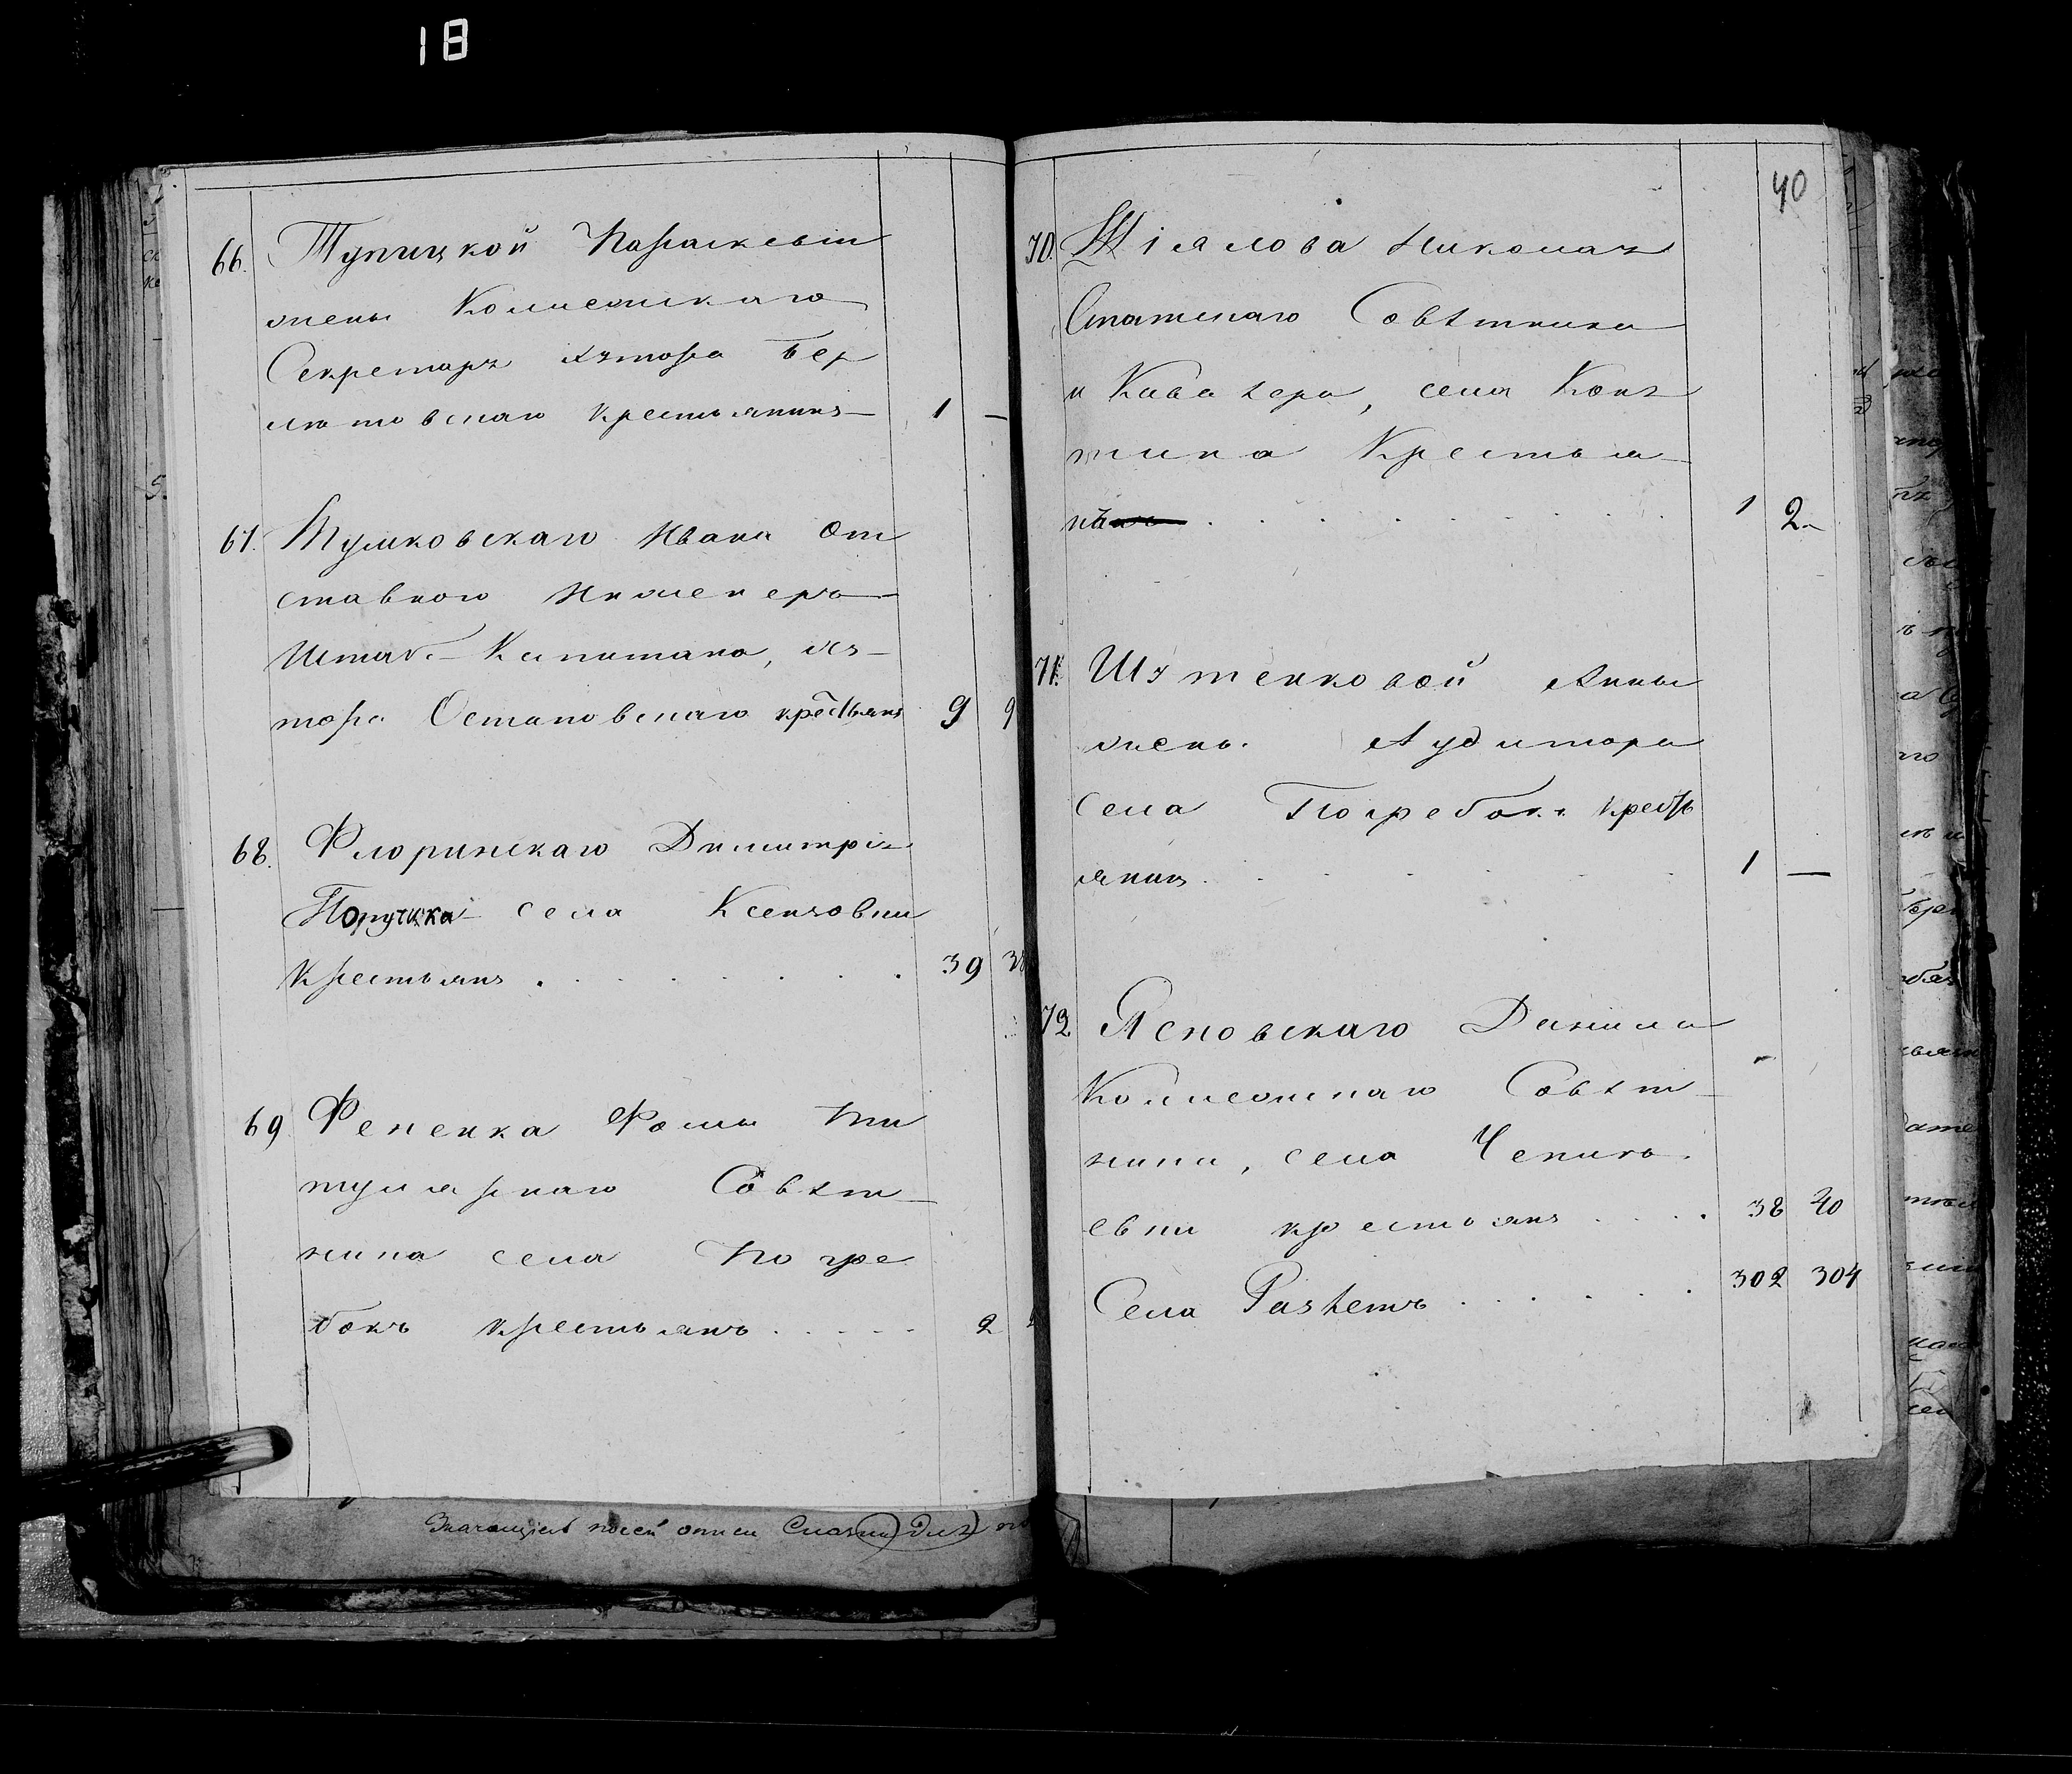 18
66. Тупицкой Параскевіи
жены Коллежскаго
Секретаря хутора Бер
лютовскаго крестьянинъ 1 —
67. Тумковскаго Ивана От
ставного Инженера
Штабс-Капитана, ху-
тора Остаповскаго крестьянъ 9 9
68. Флоринскаго Димитрія
Поручика села Ксензовки
Крестьянъ . . . . . . . 39 38
69 Фененка Фомы Ти
тулярнаго Совѣт
ника села Погре
бокъ крестьянъ . . . . . 2
Значащіеся по сей описи
40
70. Николая
Статскаго Совѣтника
и Кавалера, села
Крестья
нъ . . . . . . . . 1 2
71. Шутенковой Анны
жены Аудитора
села Погребокъ кресть
янин . . . . . . 1 —
72 Ясновскаго Данила
Коллежскаго Совѣт
ника, села Чепли
евки крестьянъ . . . . 38 40
Села . . . . . . 302 304